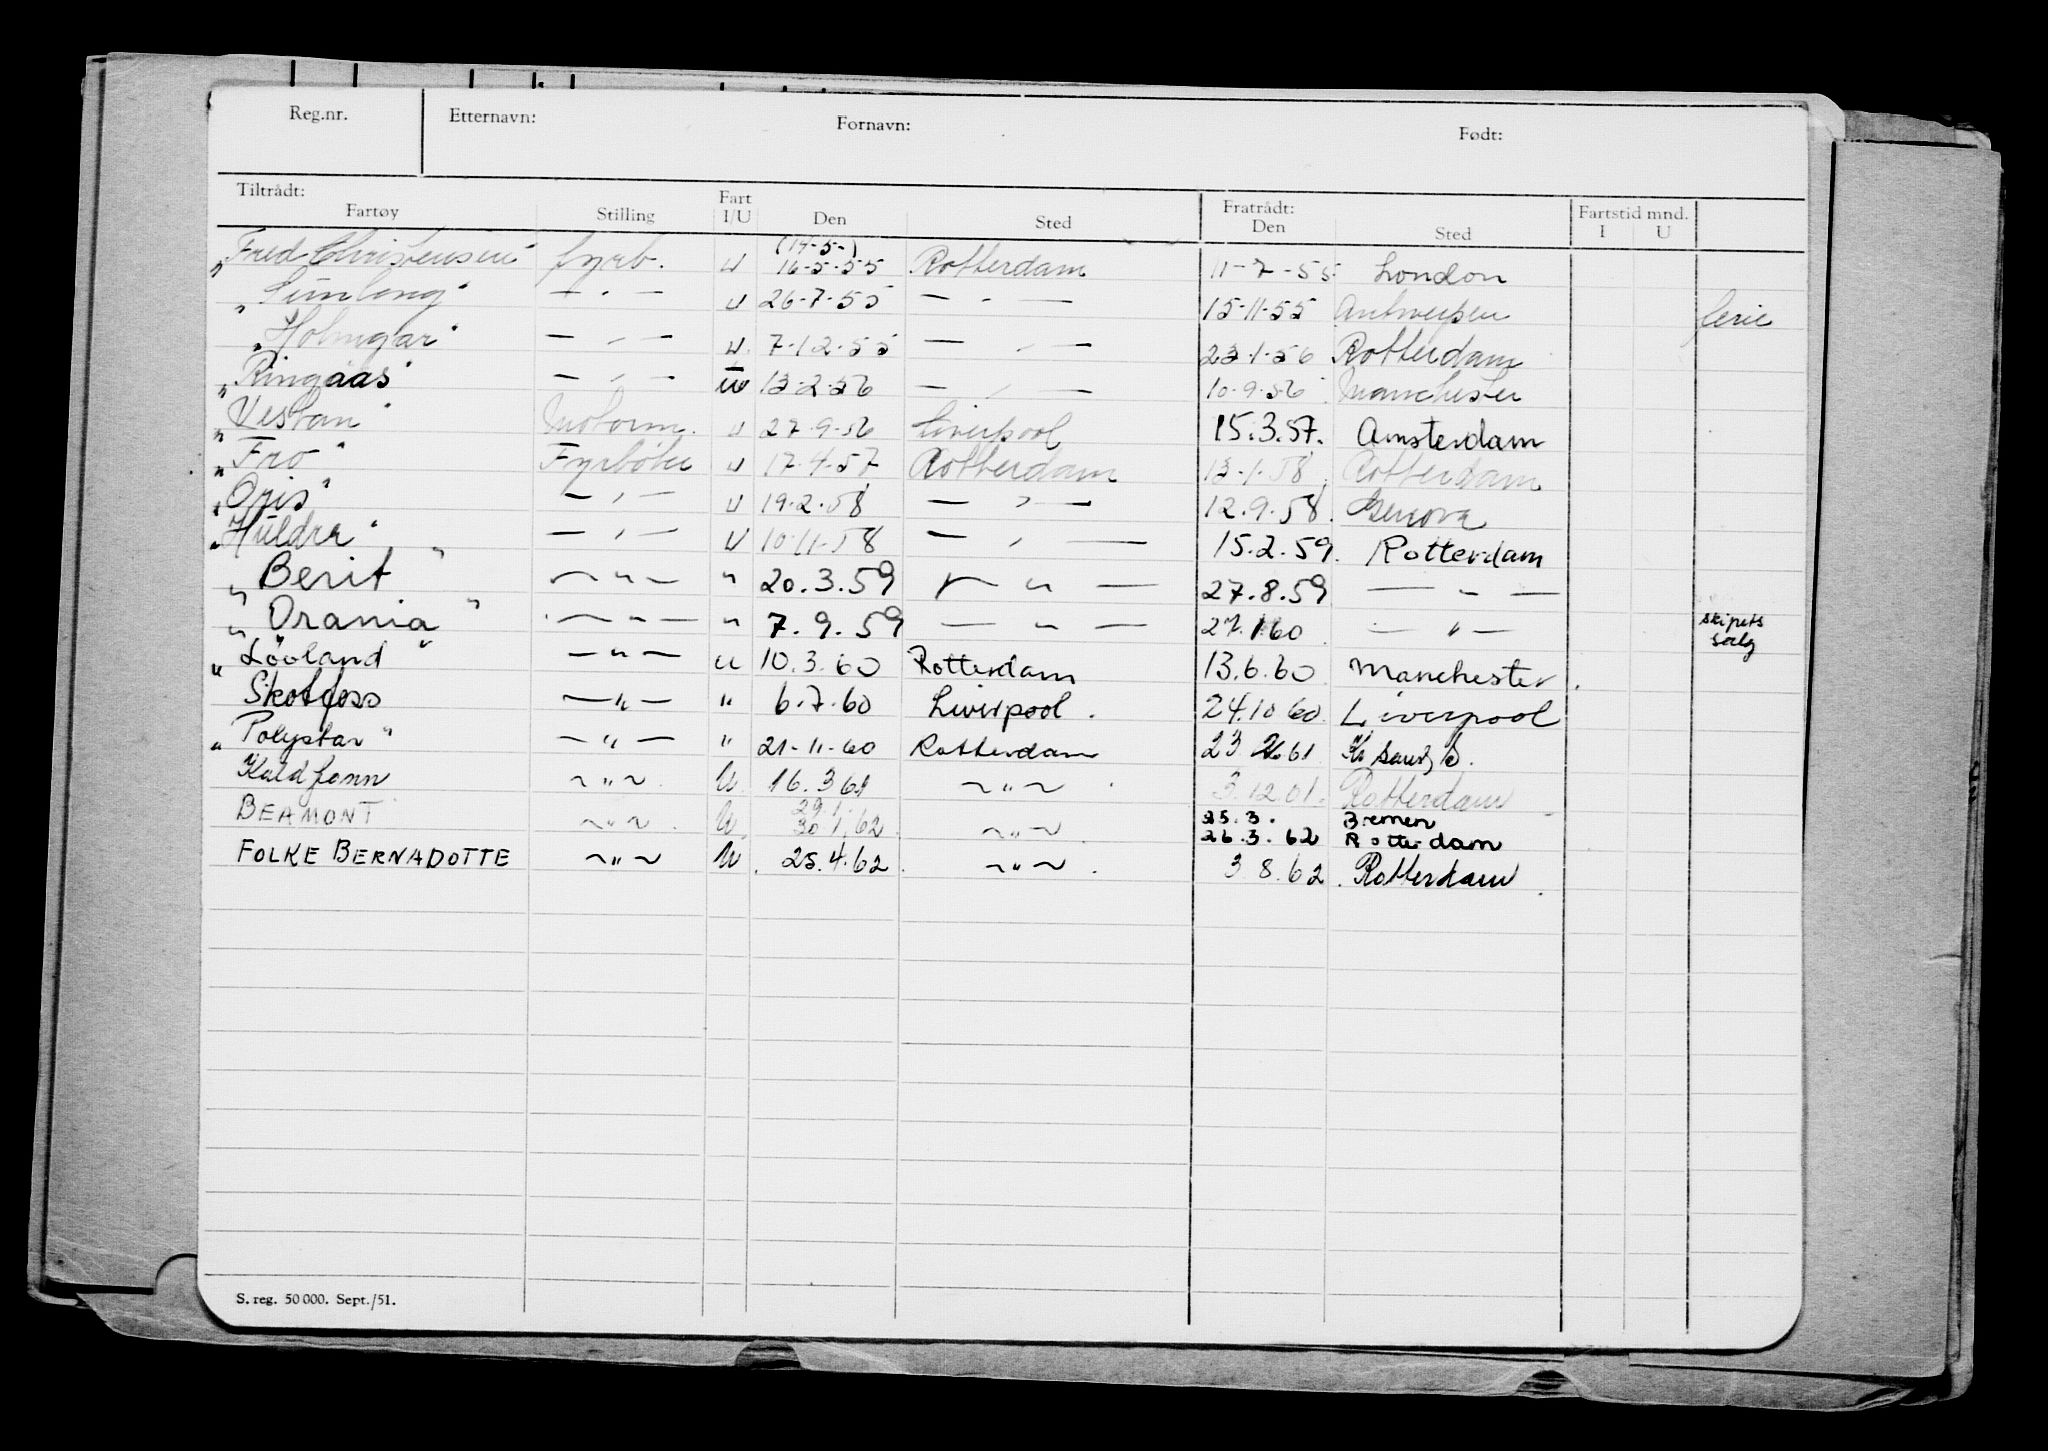 Reg.nr. Etternavn: Fornavn: Født:
Tiltrådt: Fratrådt:
Fartøy Stilling Fart I/U Den Sted Den Sted Fartstid mnd. I U
(14-5-)
"Fred Christensen" fyrb. u 16-5-55 Rotterdam 11-7-55 London
" " — " — u 26-7-55 — " — 15-11-55 Antwerpen ferie
"Holmgar" — " — u. 7-12-55 — " — 23-1-56 Rotterdam
"Ringaas" — " — u 13-2-56 — " — 10-9-56 Manchester
"Vestan" Motorm. u 27-9-56 Liverpool 15.3.57. Amsterdam
"Fro" Fyrbøter u 17-4-57 Rotterdam 13-1-58. Rotterdam
"Oris" — " — u 19-2-58 — " — 12.9.58. Genova
"Huldra" — " — u 10-11-58 — " — 15.2.59. Rotterdam
"Berit" — " — " 20.3.59 — " — 27.8.59 — " —
"Orania" — " — " 7.9.59 — " — 27.1.60 — " — skipets salg
"Lööland" — " — u 10.3.60 Rotterdam 13.6.60 Manchester.
Skotfoss — " — " 6.7.60 Liverpool. 24.10.60. Liverpool
"Polystar" — " — " 21-11-60 Rotterdam 23 61 Kr sand S.
Kaldfonn ~ " ~ U 16.3 61 ~ " ~ 3.12.61. Rotterdam
29.1. 25.3. Bremen
BEAMONT ~ " ~ U. 30 1.62 ~ " ~ 26.3.62 Rotterdam
FOLKE BERNADOTTE ~ " ~ U. 25.4.62. ~ " ~. 3 8.62. Rotterdam.
S. reg. 50 000. Sept./51.